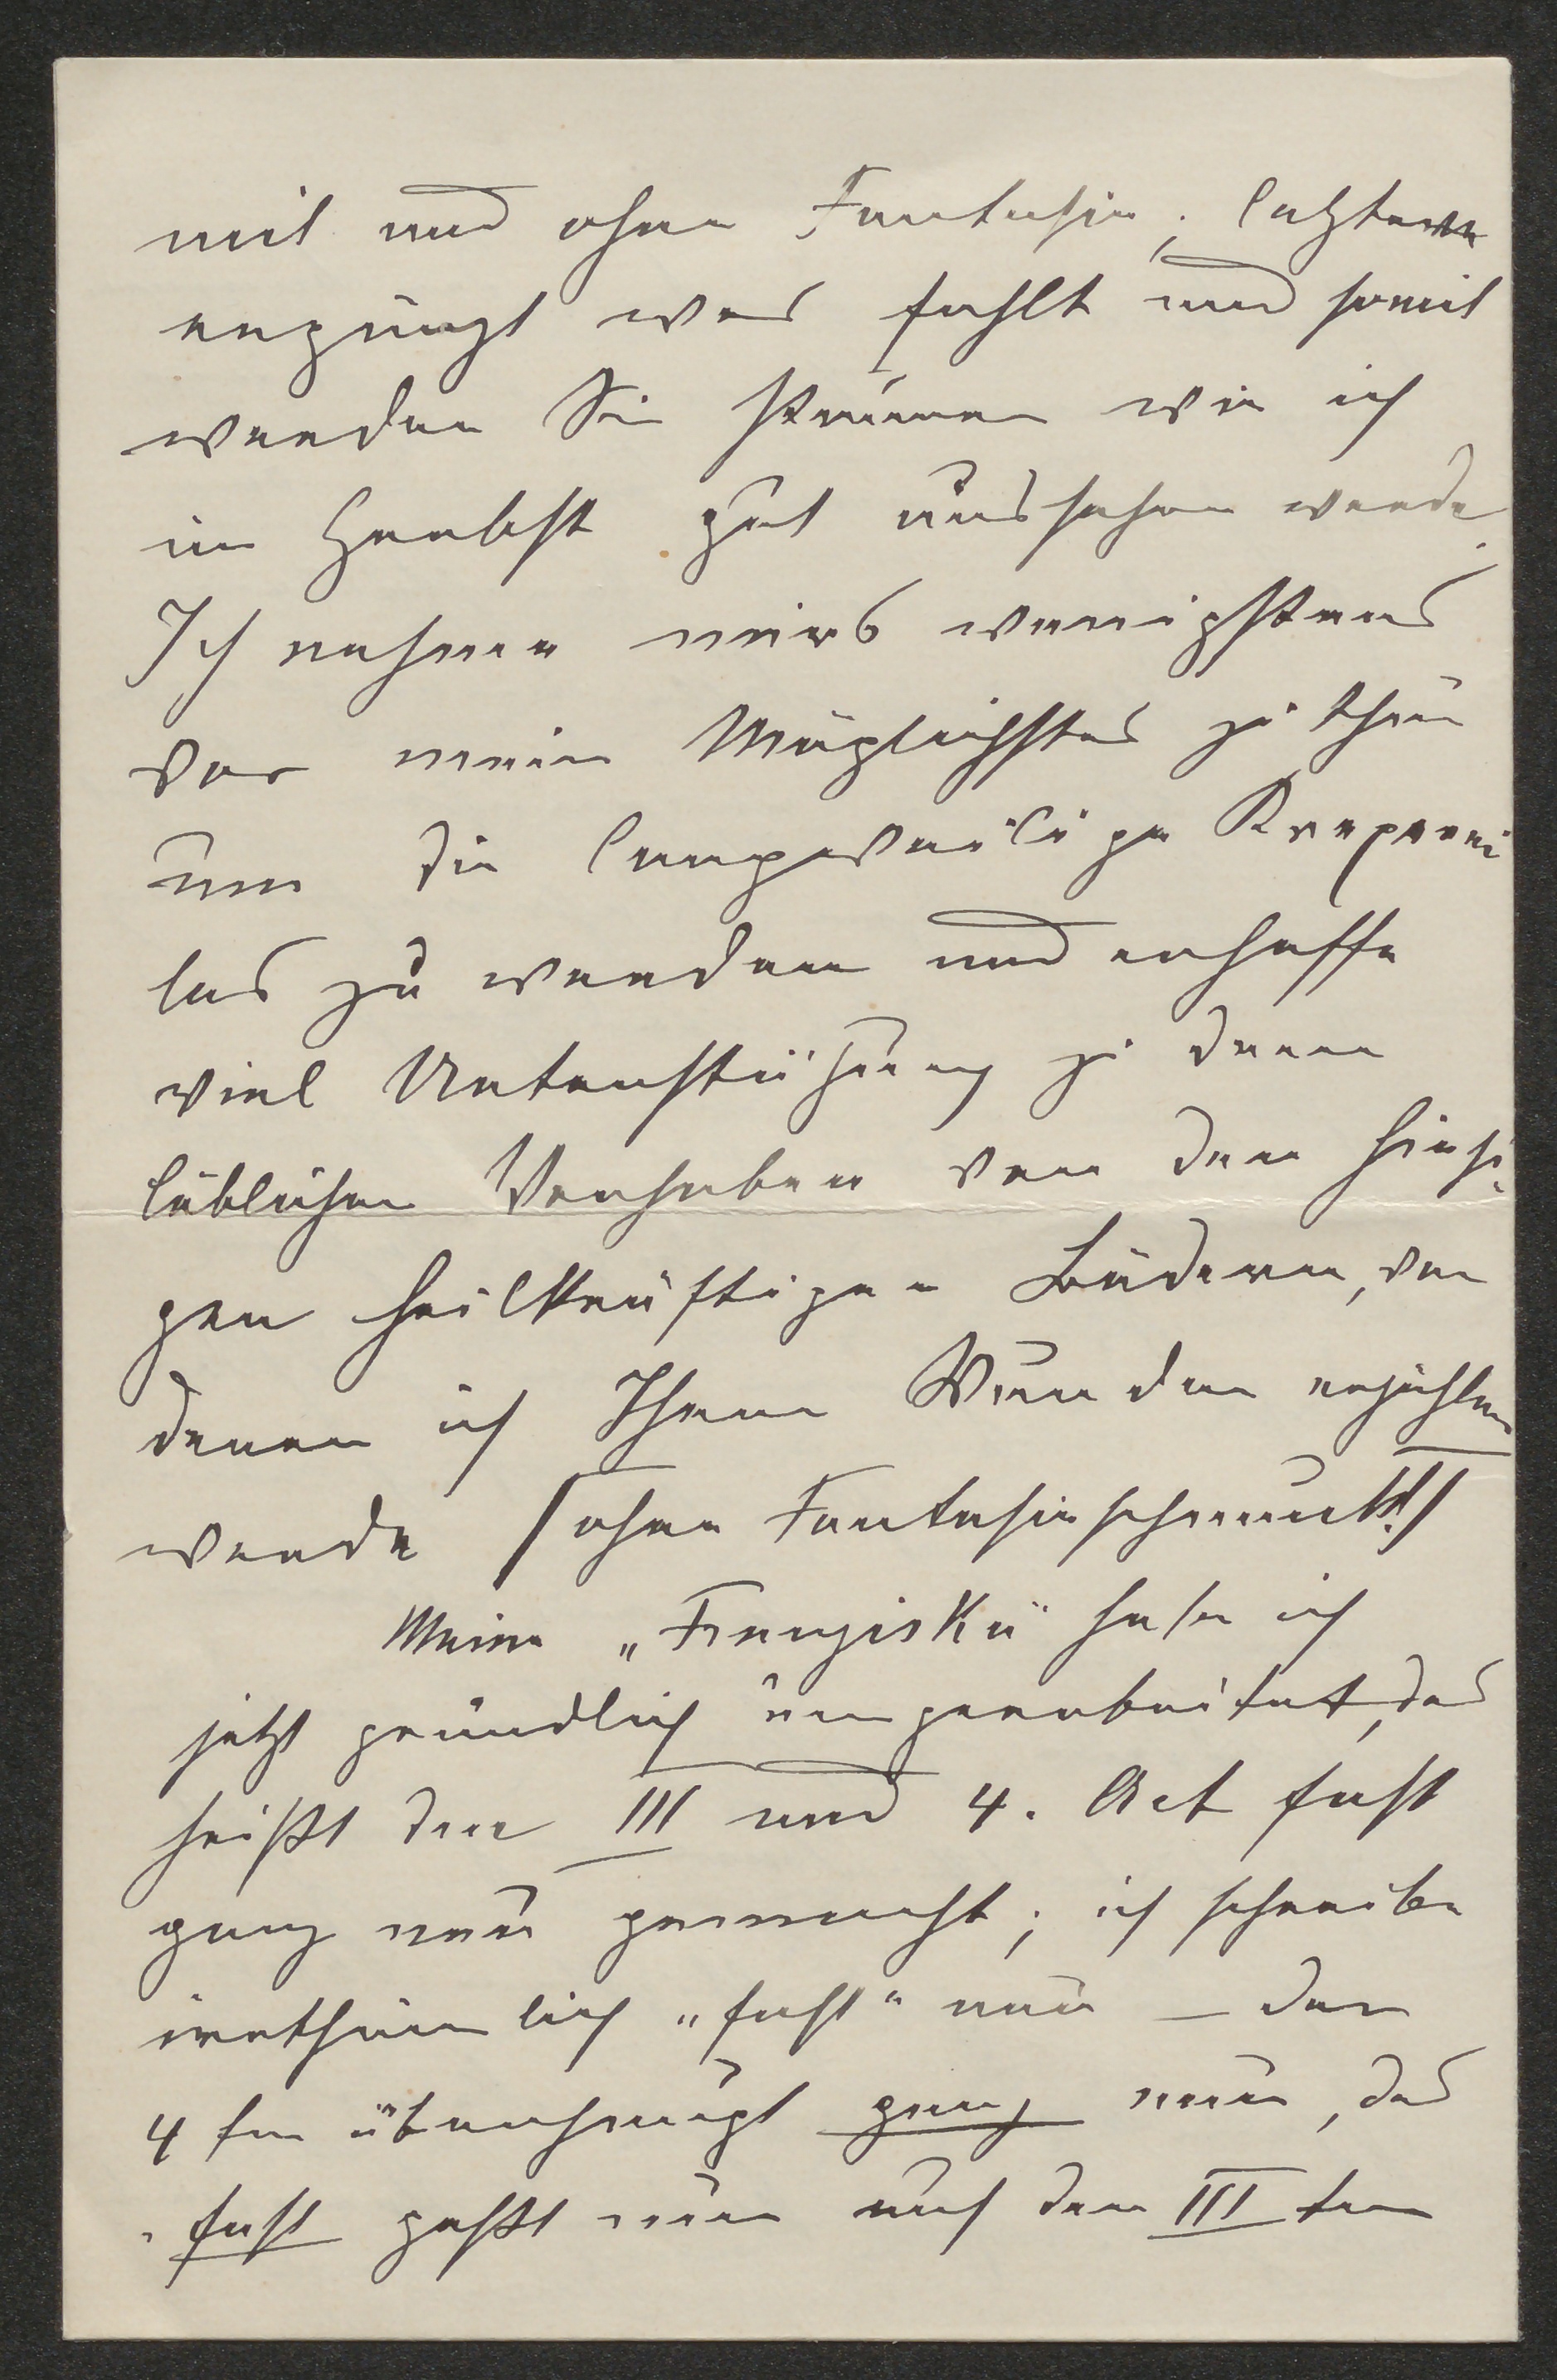 mit und ohne Fantasie; letztere
ergänzt was fehlt und somit
werden Sie staunen wie ich
im Herbst gut aussehen werde.
Ich nehme mirs wenigstens
vor mein Möglichstes zu thun
um die langweilige Kraxerei
los zu werden und erhoffe
viel Unterstützung zu dem
löblichen Vorhaben von den hiesi¬
gen heilkräftigen Bädern, von
denen ich Ihnen Wunder erzählen
werde (ohne Fantasieschmuck!)
Meine „Franziska" habe ich
jetzt gründlich umgearbeitet, das
heißt den III und 4. Act fast
ganz neu gemacht; ich schreibe
irrthümlich „fast" neu — den
4ten überhaupt ganz neu, das
fast paßt nur auf den III ten